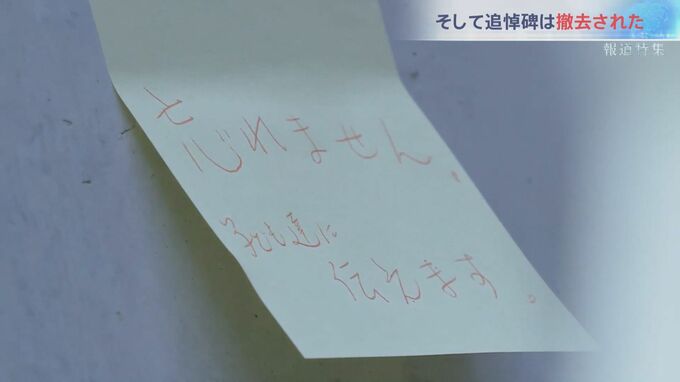 そして追悼碑は撤去された
報道特集
と
忘れません。
子ども達に
伝えます。